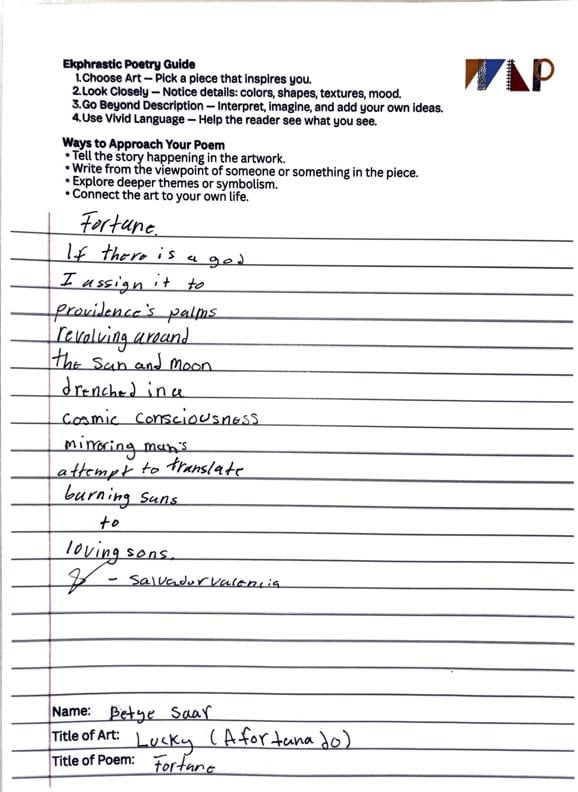 Ekphrastic Poetry Guide
1.Choose Art – Pick a piece that inspires you.
2.Look Closely – Notice details: colors, shapes, textures, mood.
3.Go Beyond Description – Interpret, imagine, and add your own ideas.
4.Use Vivid Language – Help the reader see what you see.
WAP
Ways to Approach Your Poem
• Tell the story happening in the artwork.
• Write from the viewpoint of someone or something in the piece.
• Explore deeper themes or symbolism.
• Connect the art to your own life.
Fortune.
If there is a god
I assign it to
providence's palms
revolving around
the sun and moon
drenched in a
cosmic consciousness
mirroring man's
attempt to translate
burning suns
to
loving sons.
- Salvador Valencia
Name: Betye Saar
Title of Art: Lucky (Afortunado)
Title of Poem: Fortune